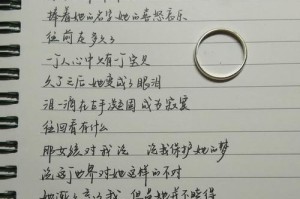 捧着她的名字她的喜怒哀乐
往前走多久了
一个人心中只有一个宝贝
久了之后她变成了眼泪
泪一滴在左手凝固成为寂寞
往回看有什么
那女孩对我说 说我保护她的梦
说这个世界对她这样的不对
她渐渐忘了我 但是她并不晓得